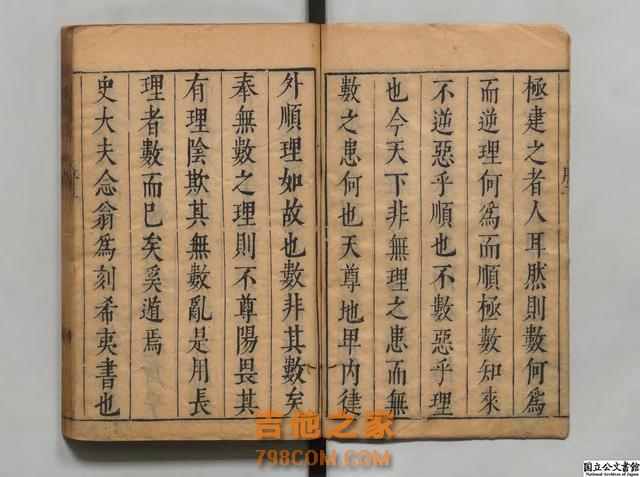 極建之者人耳然則數何爲
而逆理何爲而順極數知來
不逆惡乎順也不數惡乎理
也今天下非無理之患而無
數之患何也天尊地卑内律
外順理如故也數非其數矣
奉無數之理則不尊陽畏其
有理陰欺其無數亂是用長
理者數而已矣奚遁焉
史大夫念翁爲刻希夷書也
吉他之家
798COM.COM
国立公文書館
National Archives of Japan